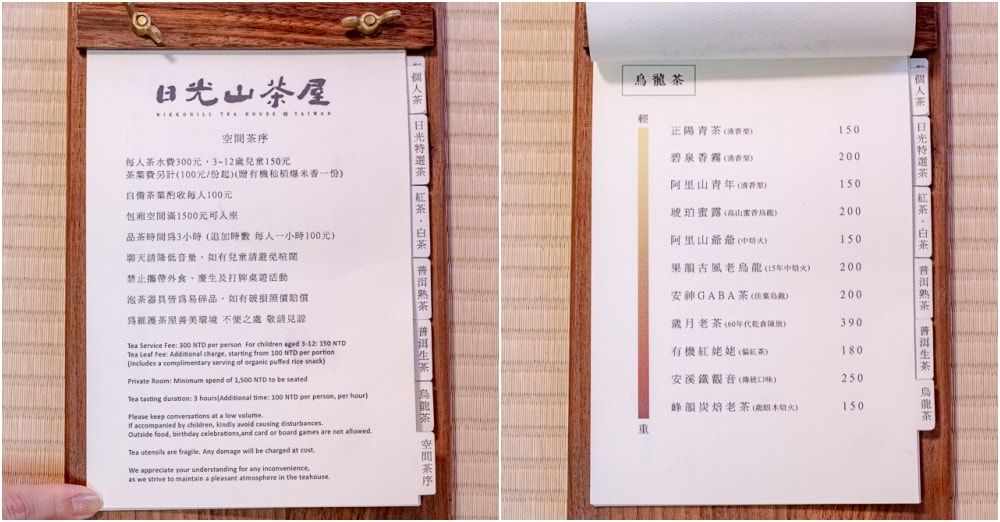 日光山茶屋
NIKKOHILL TEA HOUSE @ TAIWAN
空間茶序
每人茶水費300元，3~12歲兒童150元
茶葉費另計(100元/份起)(贈有機秈稻爆米香一份)
自備茶葉酌收每人100元
包廂空間滿1500元可入座
品茶時間爲3小時 (追加時數 每人一小時100元)
聊天請降低音量，如有兒童請避免喧鬧
禁止攜帶外食、慶生及打牌桌遊活動
泡茶器具皆爲易碎品，如有破損照價賠償
爲維護茶屋善美環境 不便之處 敬請見諒
Tea Service Fee: 300 NTD per person For children aged 3-12: 150 NTD
Tea Leaf Fee: Additional charge, starting from 100 NTD per portion
(Includes a complimentary serving of organic puffed rice snack)
Private Room: Minimum spend of 1,500 NTD to be seated
Tea tasting duration: 3 hours(Additional time: 100 NTD per person, per hour)
Please keep conversations at a low volume.
If accompanied by children, kindly avoid causing disturbances.
Outside food, birthday celebrations,and card or board games are not allowed.
Tea utensils are fragile. Any damage will be charged at cost.
We appreciate your understanding for any inconvenience,
as we strive to maintain a pleasant atmosphere in the teahouse.
個人茶
日光特選茶
紅茶·白茶
普洱熟茶
普洱生茶
烏龍茶
空間茶序
烏龍茶
輕
正陽青茶(清香型) 150
碧泉香霧(清香型) 200
阿里山青年(清香型) 150
琥珀蜜露(高山蜜香烏龍) 200
阿里山爺爺(中焙火) 150
果韻古風老烏龍(15年中焙火) 200
安神GABA茶(佳葉烏龍) 200
歲月老茶(60年代乾倉陳放) 390
有機紅姥姥(偏紅茶) 180
安溪鐵觀音(傳統口味) 250
峰韻炭焙老茶(龍眼木焙火) 150
重
個人茶
日光特選茶
紅茶·白茶
普洱熟茶
普洱生茶
烏龍茶